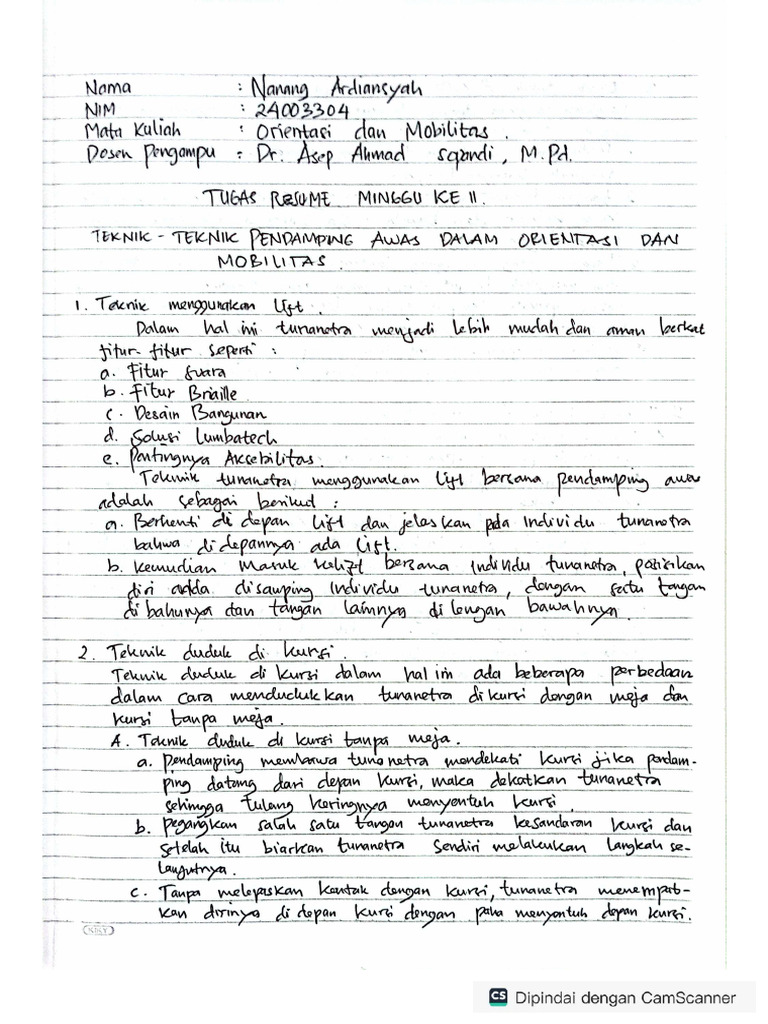 Nama : Nanang Ardiansyah
NIM : 24003304
Mata Kuliah : Orientasi dan Mobilitas.
Dosen Pengampu : Dr. Asep Ahmad Sopandi, M.Pd.
TUGAS RESUME MINGGU KE 11.
TEKNIK - TEKNIK PENDAMPING AWAS DALAM ORIENTASI DAN
MOBILITAS.
1. Teknik menggunakan lift.
Dalam hal ini tunanetra menjadi lebih mudah dan aman berkat
fitur-fitur seperti :
a. Fitur suara
b. Fitur Braille
c. Desain Bangunan
d. Solusi Lumbatech
e. Pentingnya Aksebilitas.
Teknik tunanetra menggunakan lift bersama pendamping awas
adalah sebagai berikut :
a. Berhenti di depan lift dan jelaskan pada individu tunanetra
bahwa didepannya ada lift.
b. Kemudian masuk kelift bersama individu tunanetra, pastikan
diri adda disamping individu tunanetra, dengan satu tangan
di bahunya dan tangan lainnya di lengan bawahnya.
2. Teknik duduk di kursi.
Teknik duduk di kursi dalam hal ini ada beberapa perbedaan
dalam cara mendudukkan tunanetra dikursi dengan meja dan
kursi tanpa meja.
A. Teknik duduk di kursi tanpa meja.
a. Pendamping membawa tunanetra mendekati kursi jika pendam-
ping datang dari depan kursi, maka dekatkan tunanetra
sehingga tulang keringnya menyentuh kursi.
b. Pegangkan salah satu tangan tunanetra kesandaran kursi dan
setelah itu biarkan tunanetra sendiri melakukan langkah se-
lanjutnya.
c. Tanpa melepaskan kontak dengan kursi, tunanetra menempat-
kan dirinya di depan kursi dengan paha menyentuh depan kursi.
KIKY
CS Dipindai dengan CamScanner